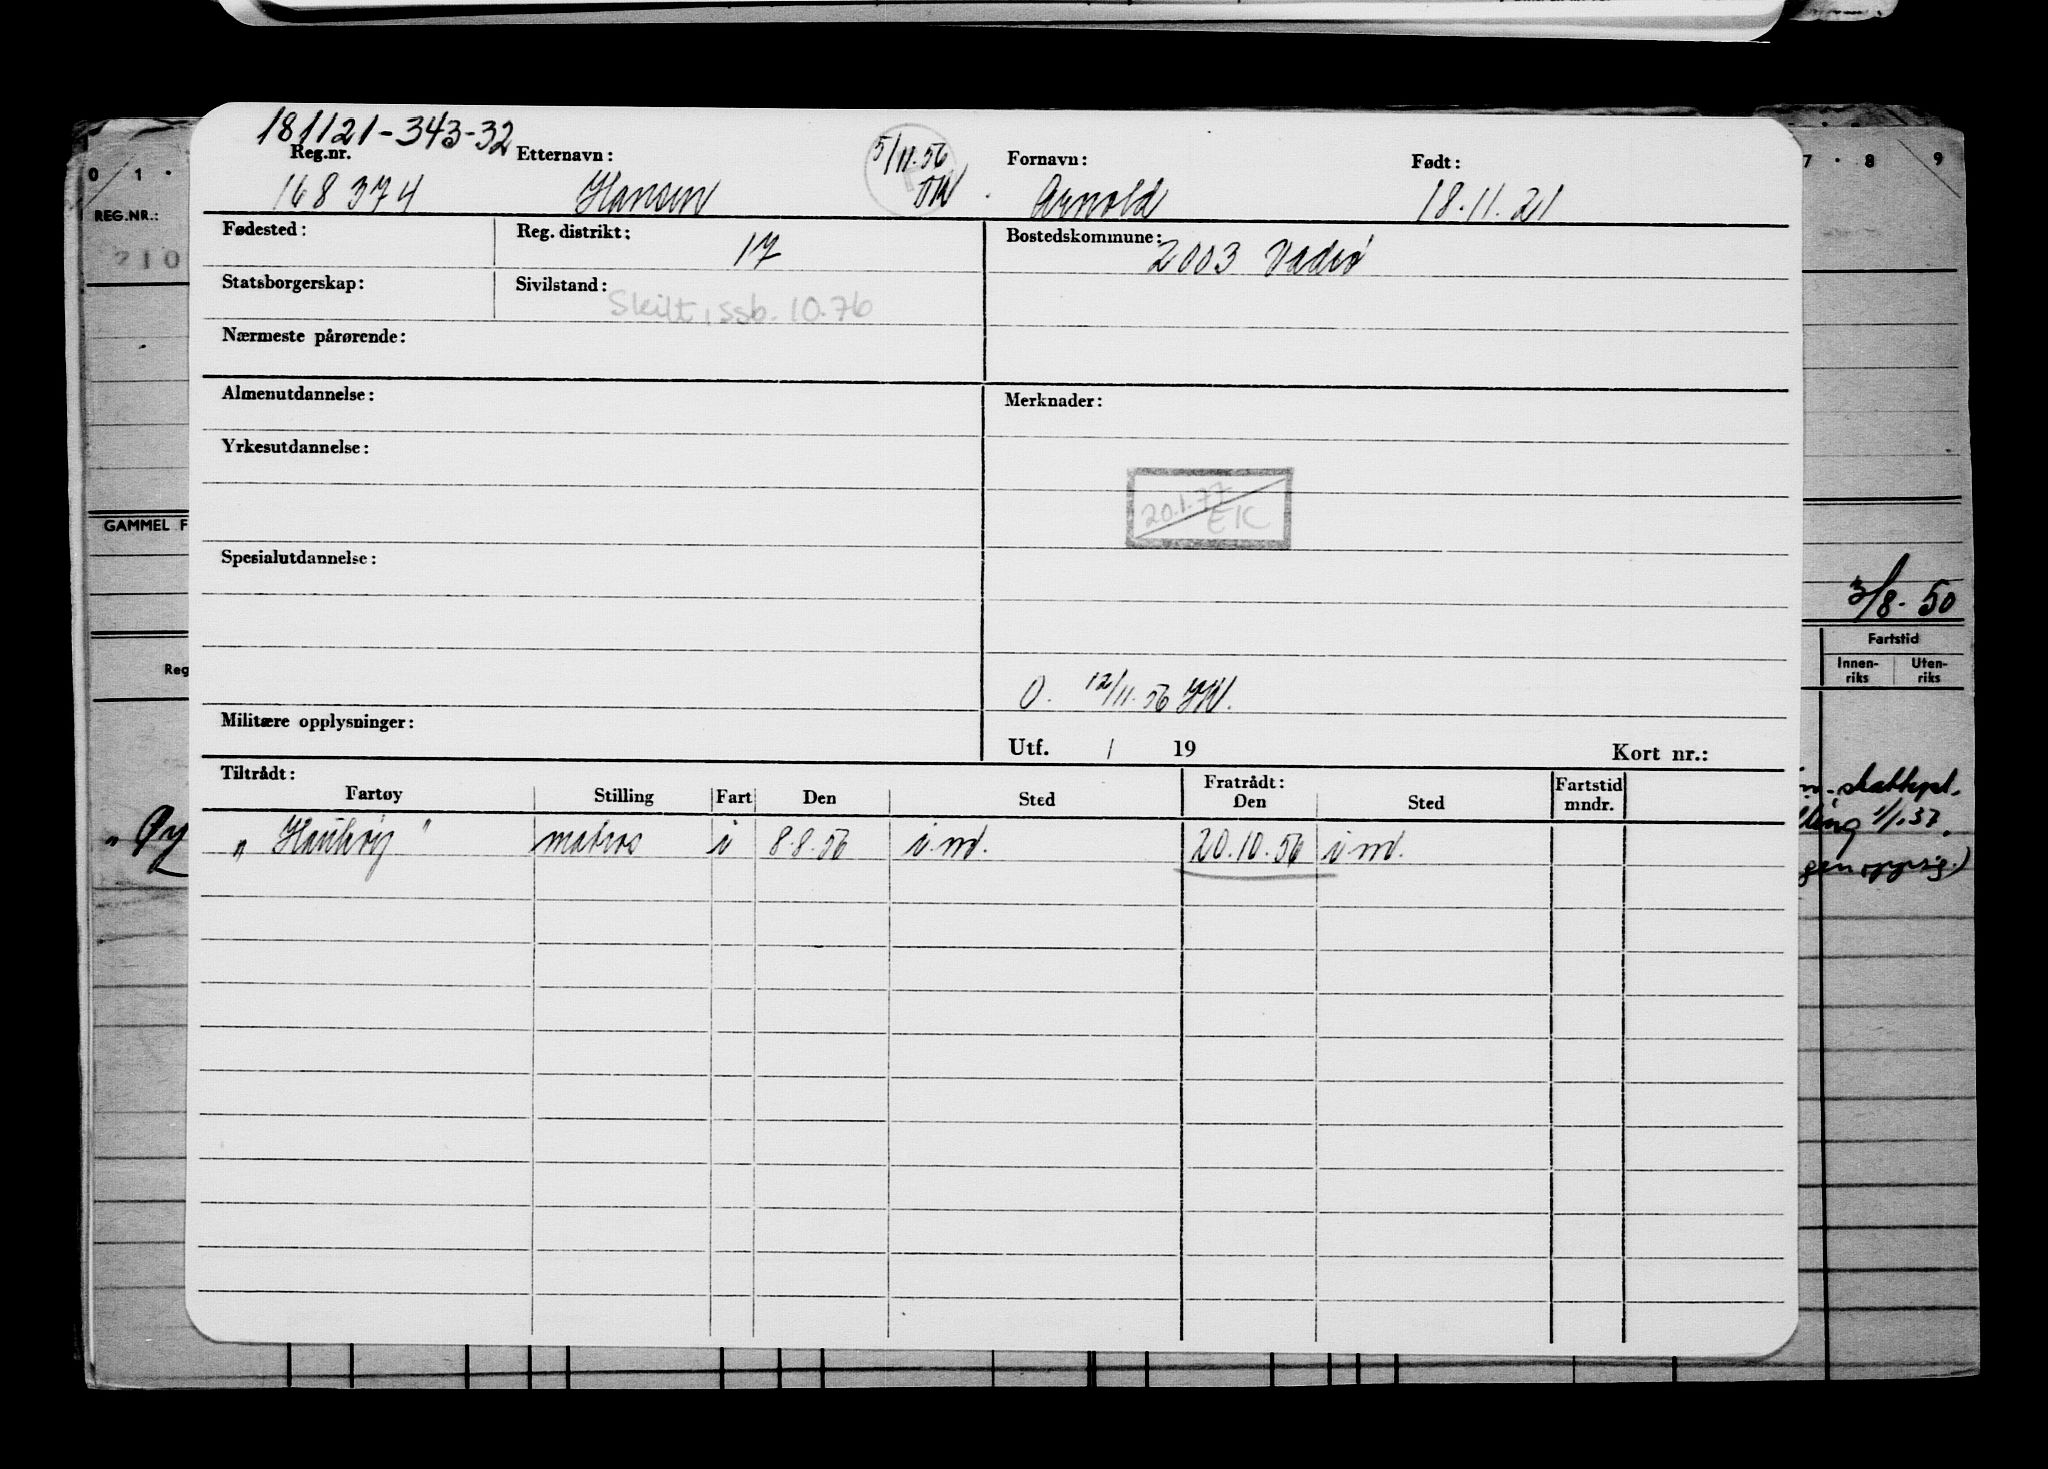 181121-343-32
Reg.nr. Etternavn: 5/11.56 Fornavn: Født:
168374 Hansen Arnold 18.11.21
Fødested: Reg. distrikt: 17 Bostedskommune: 2003 Vadsø
Statsborgerskap: Sivilstand: Skilt, ssb. 10.76
Nærmeste pårørende:
Almenutdannelse: Merknader:
Yrkesutdannelse:
20.1.77
EK
Spesialutdannelse:
O. 12/11.56
Militære opplysninger:
Utf. / 19 Kort nr.:
Tiltrådt: Fratrådt: Fartstid
Fartøy Stilling Fart Den Sted Den Sted mndr.
matros i 8.8.56 i.m. 20.10.56 i.m.
0 1 .
REG.NR.:
210
GAMMEL F
Reg
7 . 8 9
3/8-50
Fartstid
Innen-
riks
Uten-
riks
1/1.57.